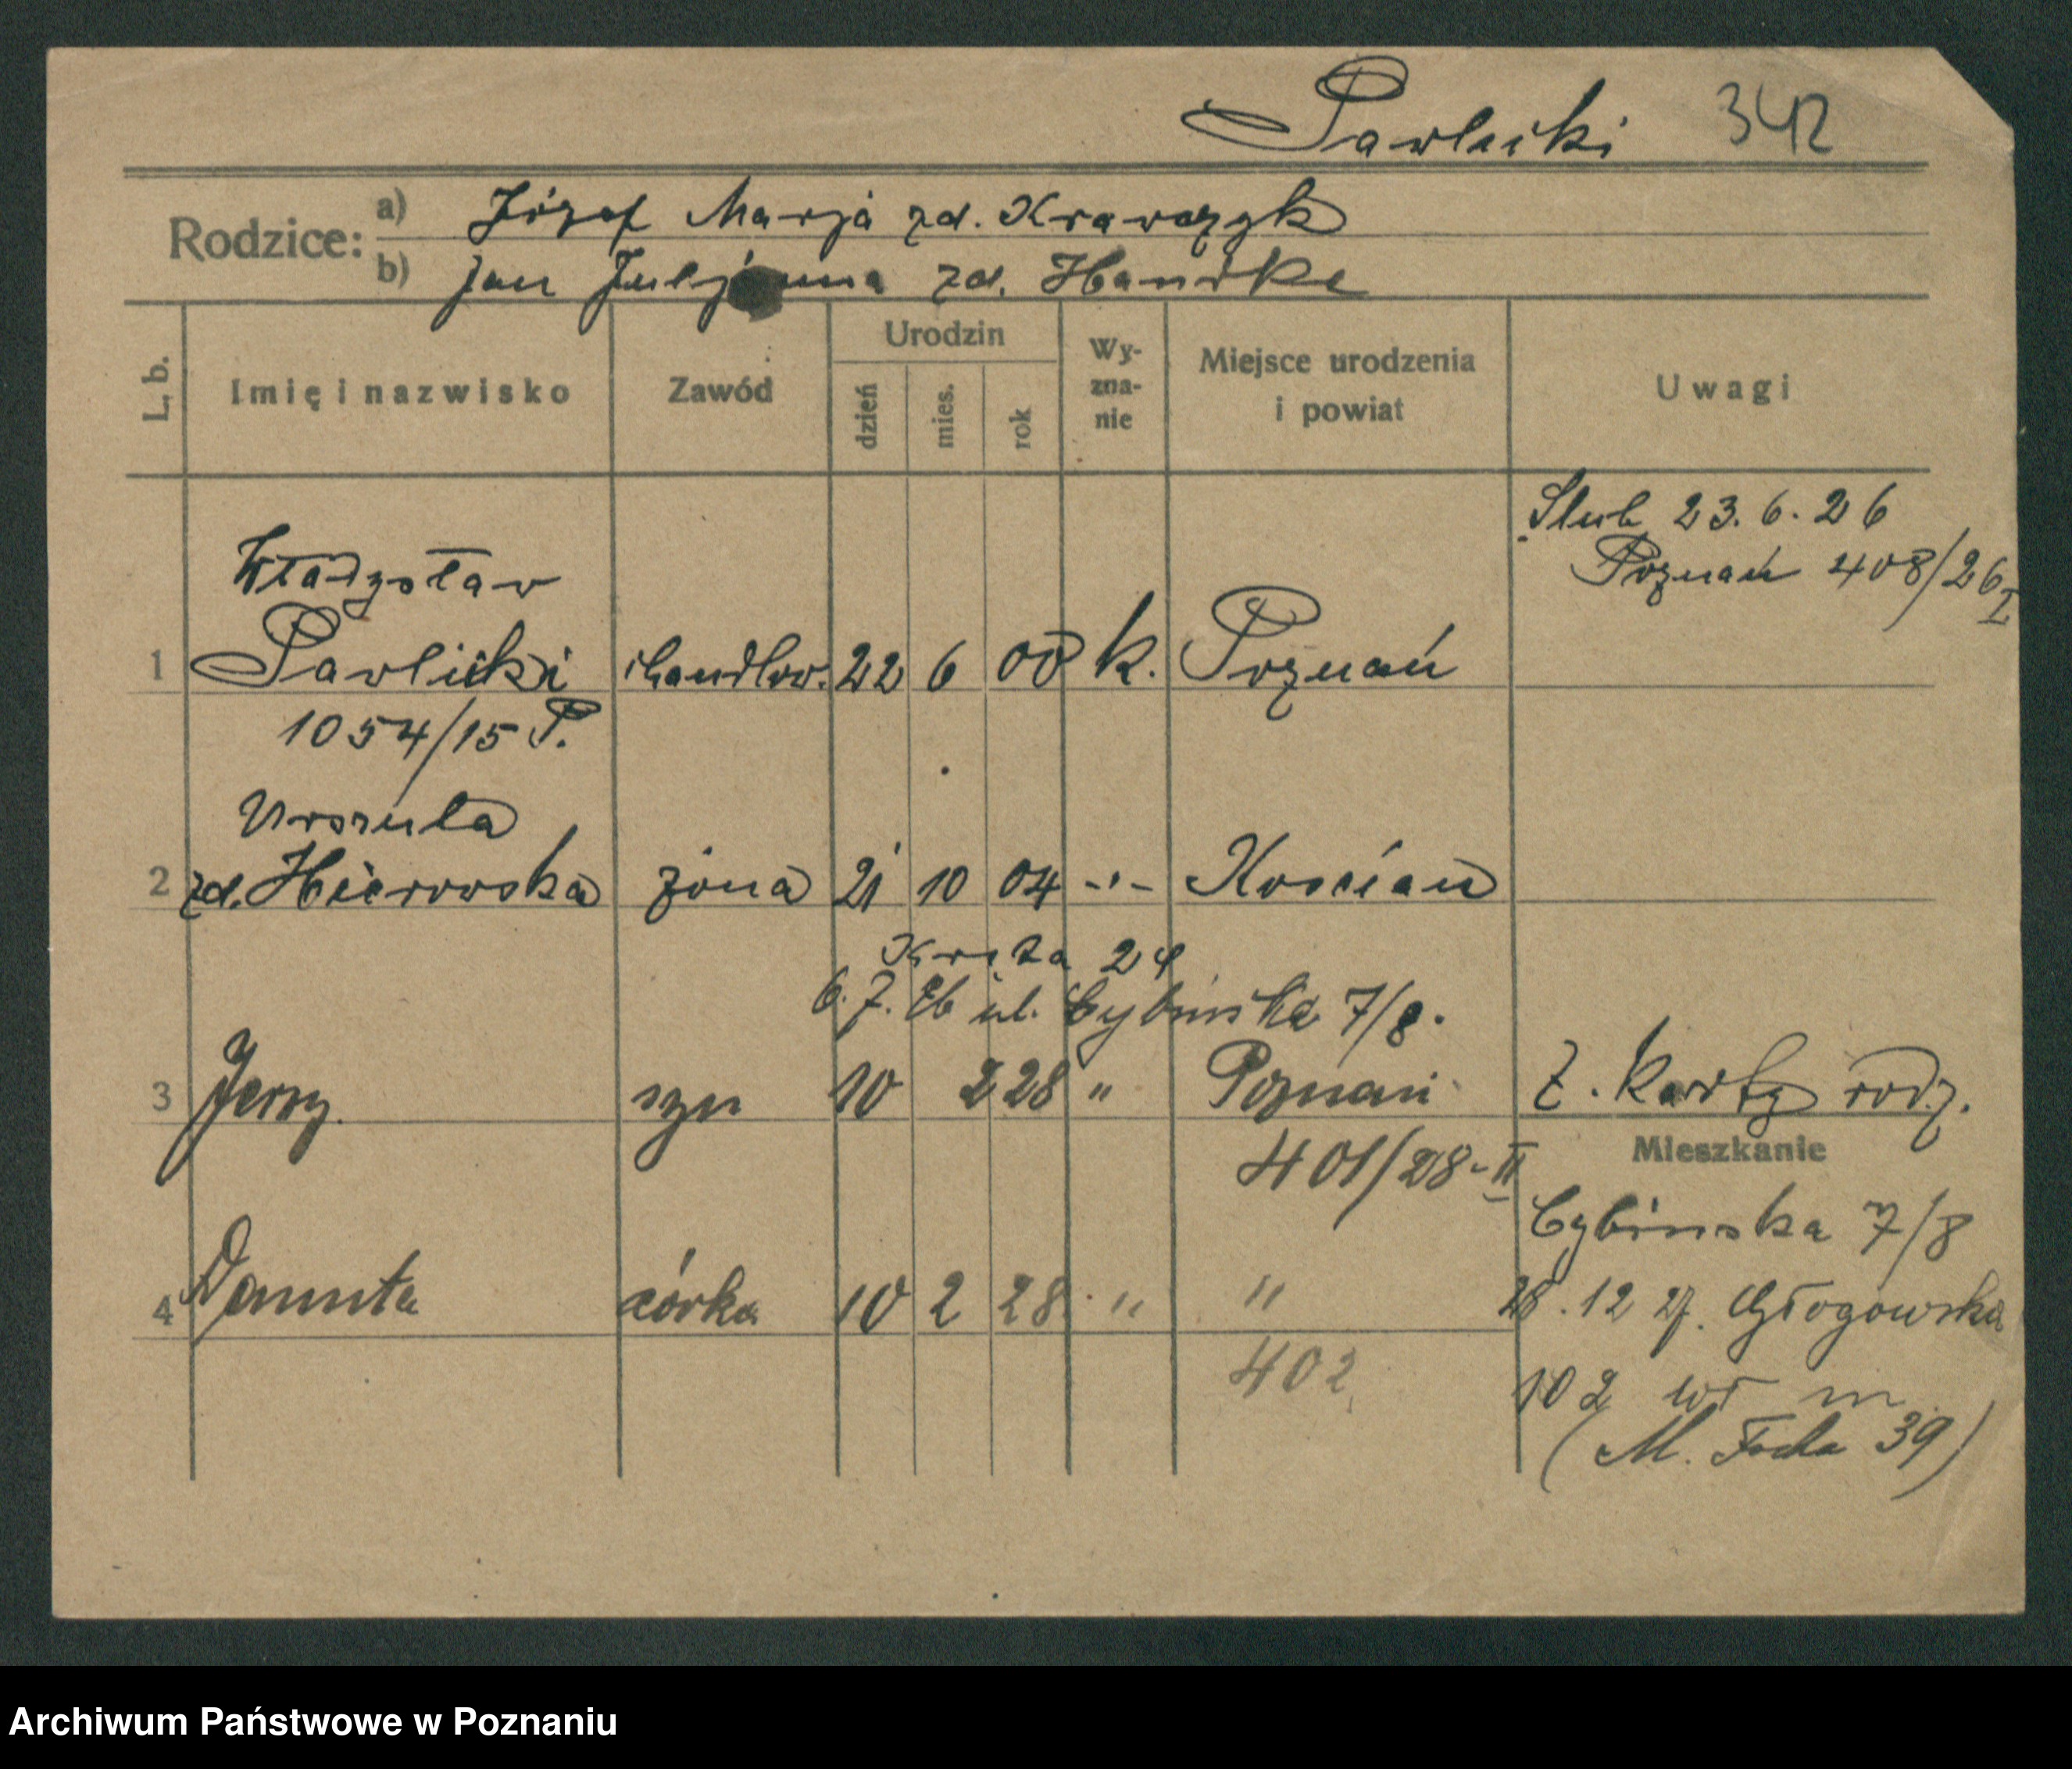 Pawlicki 342
Rodzice: a) Józef Marja zd. Krawczyk
b) Jan Juljanna zd. Handke
L. b. Imię i nazwisko Zawód Urodzin dzień mies. rok Wy-zna-nie Miejsce urodzenia i powiat Uwagi
Ślub 23. 6. 26
Poznań 408/26 I
Władysław
1 Pawlicki handlow. 22 6 00 k. Poznań
1054/15 P.
Urszula
2 zd. żona 21 10 04 -"- Kościan
Kręta 24
6. 7. 26 ul. Cybińska 7/8.
3 Jerzy syn 10 2 28 " Poznań Z. karty rodz.
401/28-II
Mieszkanie
Cybinska 7/8
4 Danuta córka 10 2 28 " "
28. 12 27. Głogowska
402
102 wł m
(M. Focha 39)
Archiwum Państwowe w Poznaniu